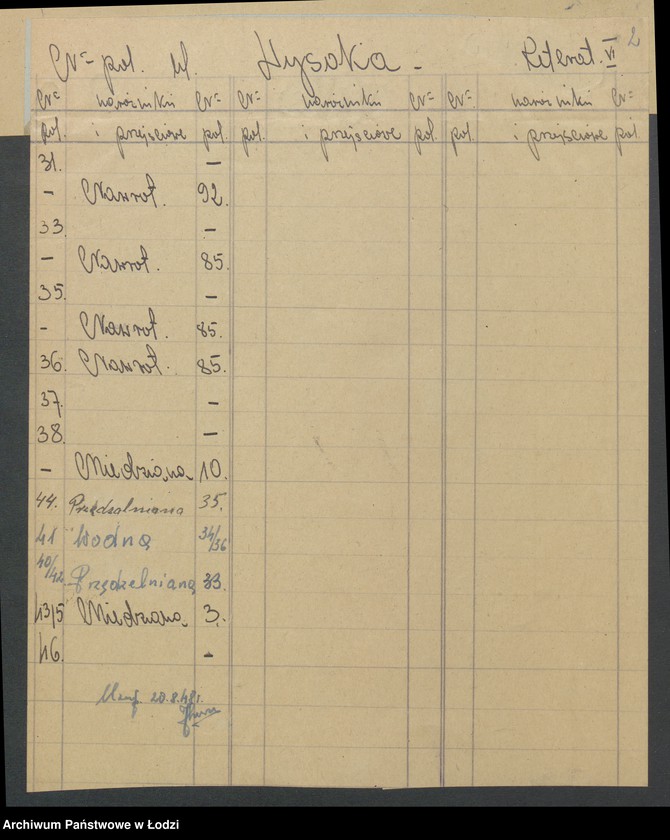 Nr pol. ul. Wysoka - Literat. VI 2
Nr narożniki Nr Nr narożniki Nr Nr narożniki Nr
pol. i przejściowe pol. pol. i przejściowe pol. pol. i przejściowe pol.
31. -
- Nawrot. 92.
33. -
- Nawrot. 85.
35. -
- Nawrot. 85.
36. Nawrot. 85.
37. -
38. -
- Miedziana 10.
44. Przędzalniana 35.
41 Wodną 34/36
40/42 Przędzelnianą 33.
43/5 Miedziana 3.
46. -
20.8.48r.
Archiwum Państwowe w Łodzi